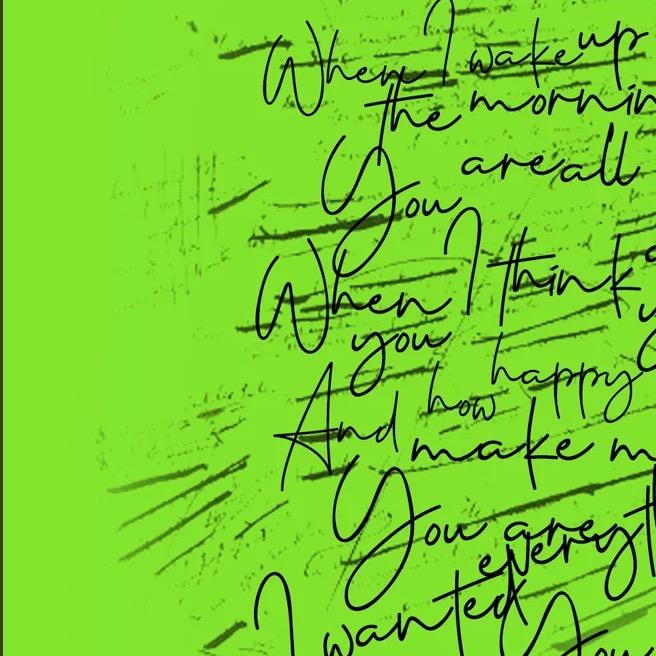 When I wake up
the mornin
You are all
When I think
you
how happy
And make m
You are
every
I wanted
You